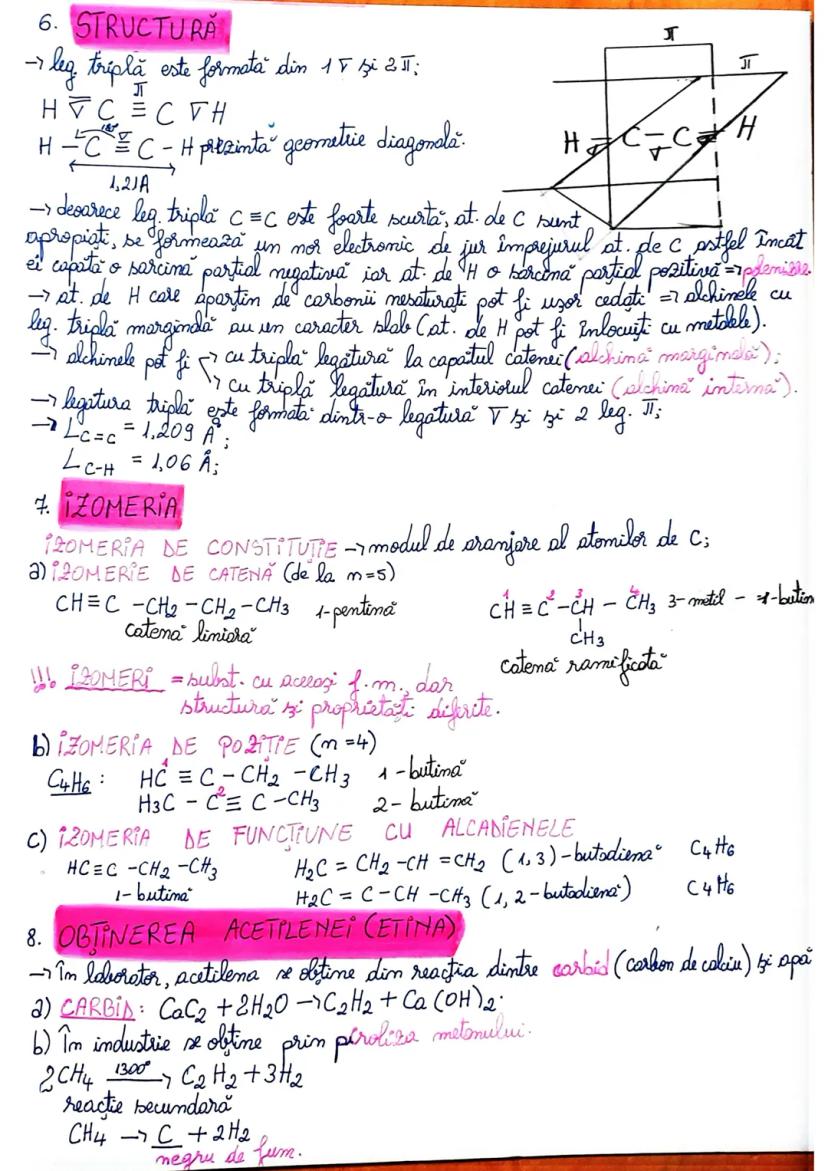 6. STRUCTURĂ
→ leg. triplă este formată din 1 σ și 2 π;
π
H σ C ≡ C σ H
H – C ≡ C – H prezintă geometrie diagonală.
180°
σ
1,21A
π
π
H – C – C – H
σ
→ deoarece leg. triplă C ≡ C este foarte scurtă, at. de C sunt
apropiați, se formează un nor electronic de jur împrejurul at. de C astfel încât
ei capătă o sarcină parțial negativă iar at. de H o sarcină parțial pozitivă ⇒
→ at. de H care aparțin de carbonii nesaturați pot fi ușor cedați ⇒ alchinele cu
leg. triplă marginală au un caracter slab (at. de H pot fi înlocuiți cu metale).
→ alchinele pot fi → cu triplă legătură la capătul catenei (alchină marginală);
→ cu triplă legătură în interiorul catenei (alchină internă).
→ legătura triplă este formată dintr-o legătură σ și și 2 leg. π;
→ L C=C = 1,209 Å;
L C-H = 1,06 Å;
7. IZOMERIA
IZOMERIA DE CONSTITUȚIE → modul de aranjare al atomilor de C;
a) IZOMERIE DE CATENĂ (de la n=5)
CH≡C –CH2 – CH2 –CH3 1-pentină
catenă liniară
1 2 3 4
CH ≡ C – CH – CH3 3-metil – 1-butin
CH3
catenă ramificată
!!! IZOMERI = subst. cu aceeași f.m., dar
structură și proprietăți diferite.
b) IZOMERIA DE POZIȚIE (n=4)
C4H6 : HC ≡ C – CH2 – CH3 1-butină
1
H3C – C ≡ C –CH3 2- butină
2
c) IZOMERIA DE FUNCȚIUNE CU ALCADIENELE
HC≡C –CH2 –CH3 H2C = CH2 –CH =CH2 (1,3)-butadiena C4H6
1-butină H2C = C – CH –CH3 (1,2-butadienă) C4H6
8. OBȚINEREA ACETILENEI (ETINA)
→ în laborator, acetilena se obține din reacția dintre carbid (carbon de calciu) și apă
a) CARBID: CaC2 + 2H2O → C2H2 + Ca (OH)2.
b) în industrie se obține prin piroliza metanului.
2CH4 1300° → C2H2 + 3H2
reacție secundară
CH4 → C + 2H2
negru de fum.